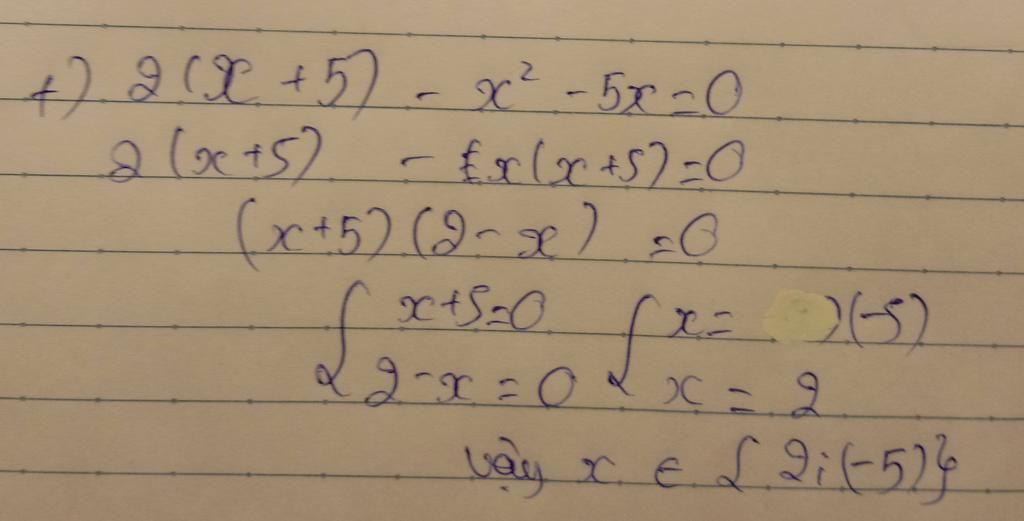 +) 2(x+5) - x² - 5x = 0
2(x+5) - x(x+5) = 0
(x+5)(2-x) = 0
{ x+5=0 { x = (-5)
2-x = 0 x = 2
Vậy x ∈ { 2; (-5)}